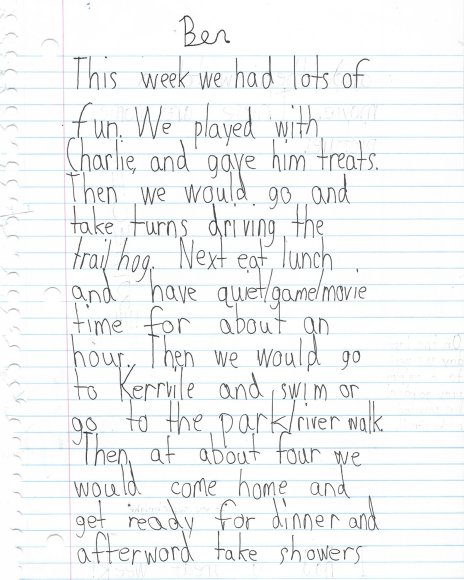 Ben
This week we had lots of
fun. We played with
Charlie, and gave him treats.
Then we would go and
take turns driving the
trail hog. Next eat lunch
and have quiet/game/movie
time for about an
hour. Then we would go
to Kerrvile and swim or
go to the park/river walk.
Then, at about four we
would come home and
get ready for dinner and
afterword take showers